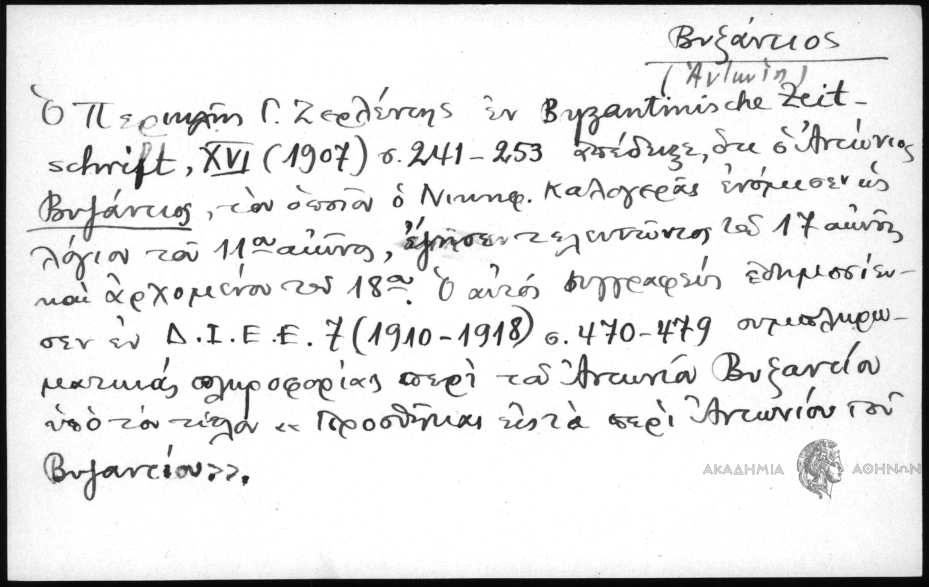 Βυζάντιος
(Ἀντώνιος)
Ὁ Περικλῆς Γ. Ζερλέντης ἐν Byzantinische Zeit-
schrift, XVI (1907) σ. 241-253 ἀπέδειξε, ὅτι ὁ Ἀντώνιος
Βυζάντιος, τὸν ὁποῖον ὁ Νικηφ. Καλογερᾶς ἐνόμισεν ὡς
λόγιον τοῦ 11ου αἰῶνος, ἔζησεν τελευτῶντος τοῦ 17 αἰῶνος
καὶ ἀρχομένου τοῦ 18ου. Ὁ αὐτός συγγραφεύς ἐδημοσίευ-
σεν ἐν Δ.Ι.Ε.Ε. 7 (1910-1918) σ. 470-479 συμπληρω-
ματικάς πληροφορίας περὶ τοῦ Ἀντωνίου Βυζαντίου
ὑπὸ τὸν τίτλον «Προσθῆκαι εἰς τὰ περὶ Ἀντωνίου τοῦ
Βυζαντίου».
ΑΚΑΔΗΜΙΑ ΑΘΗΝΩΝ